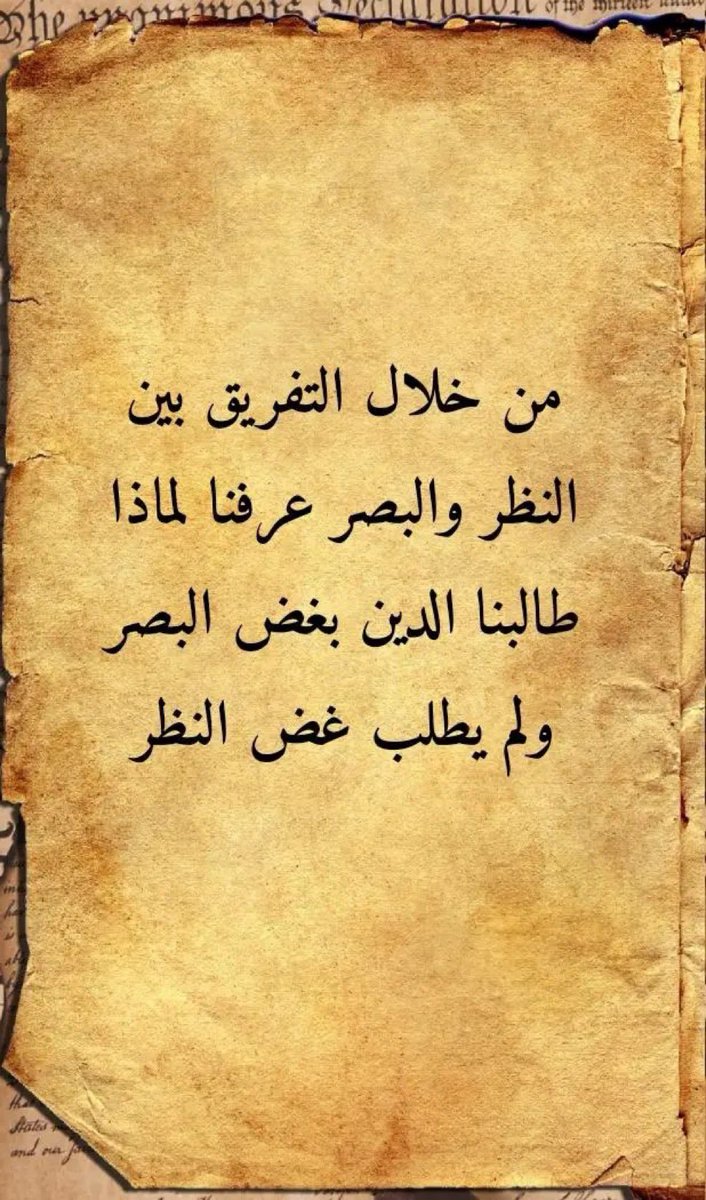 The unanimous Declaration of the thirteen united
من خلال التفريق بين
النظر والبصر عرفنا لماذا
طالبنا الدين بغض البصر
ولم يطلب غض النظر
that
States
and our